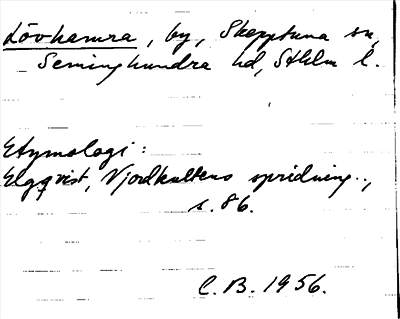 Lövhamra, by, Skepptuna sn,
Seminghundra hd, Sthlm l.
Etymologi:
Elgqvist, Njordkultens spridning..,
s. 86.
C.B. 1956.